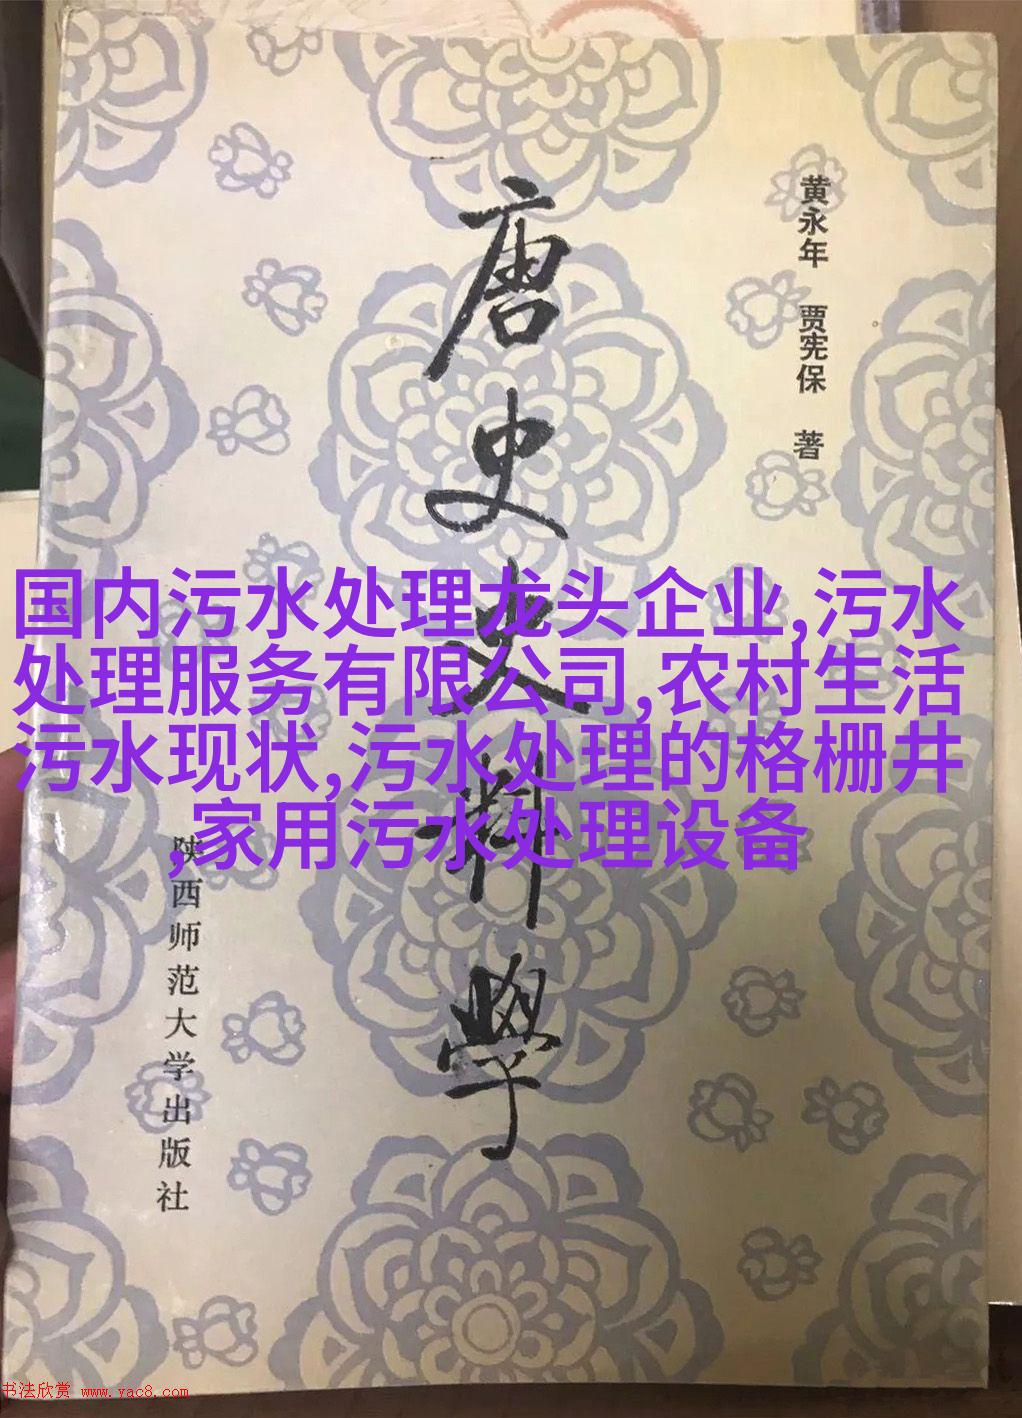 黄永年 贾宪保 著
唐史史料学
国内污水处理龙头企业,污水
处理服务有限公司,农村生活
污水现状,污水处理的格栅井
,家用污水处理设备
陕西师范大学出版社
书法欣赏 www.yac8.com